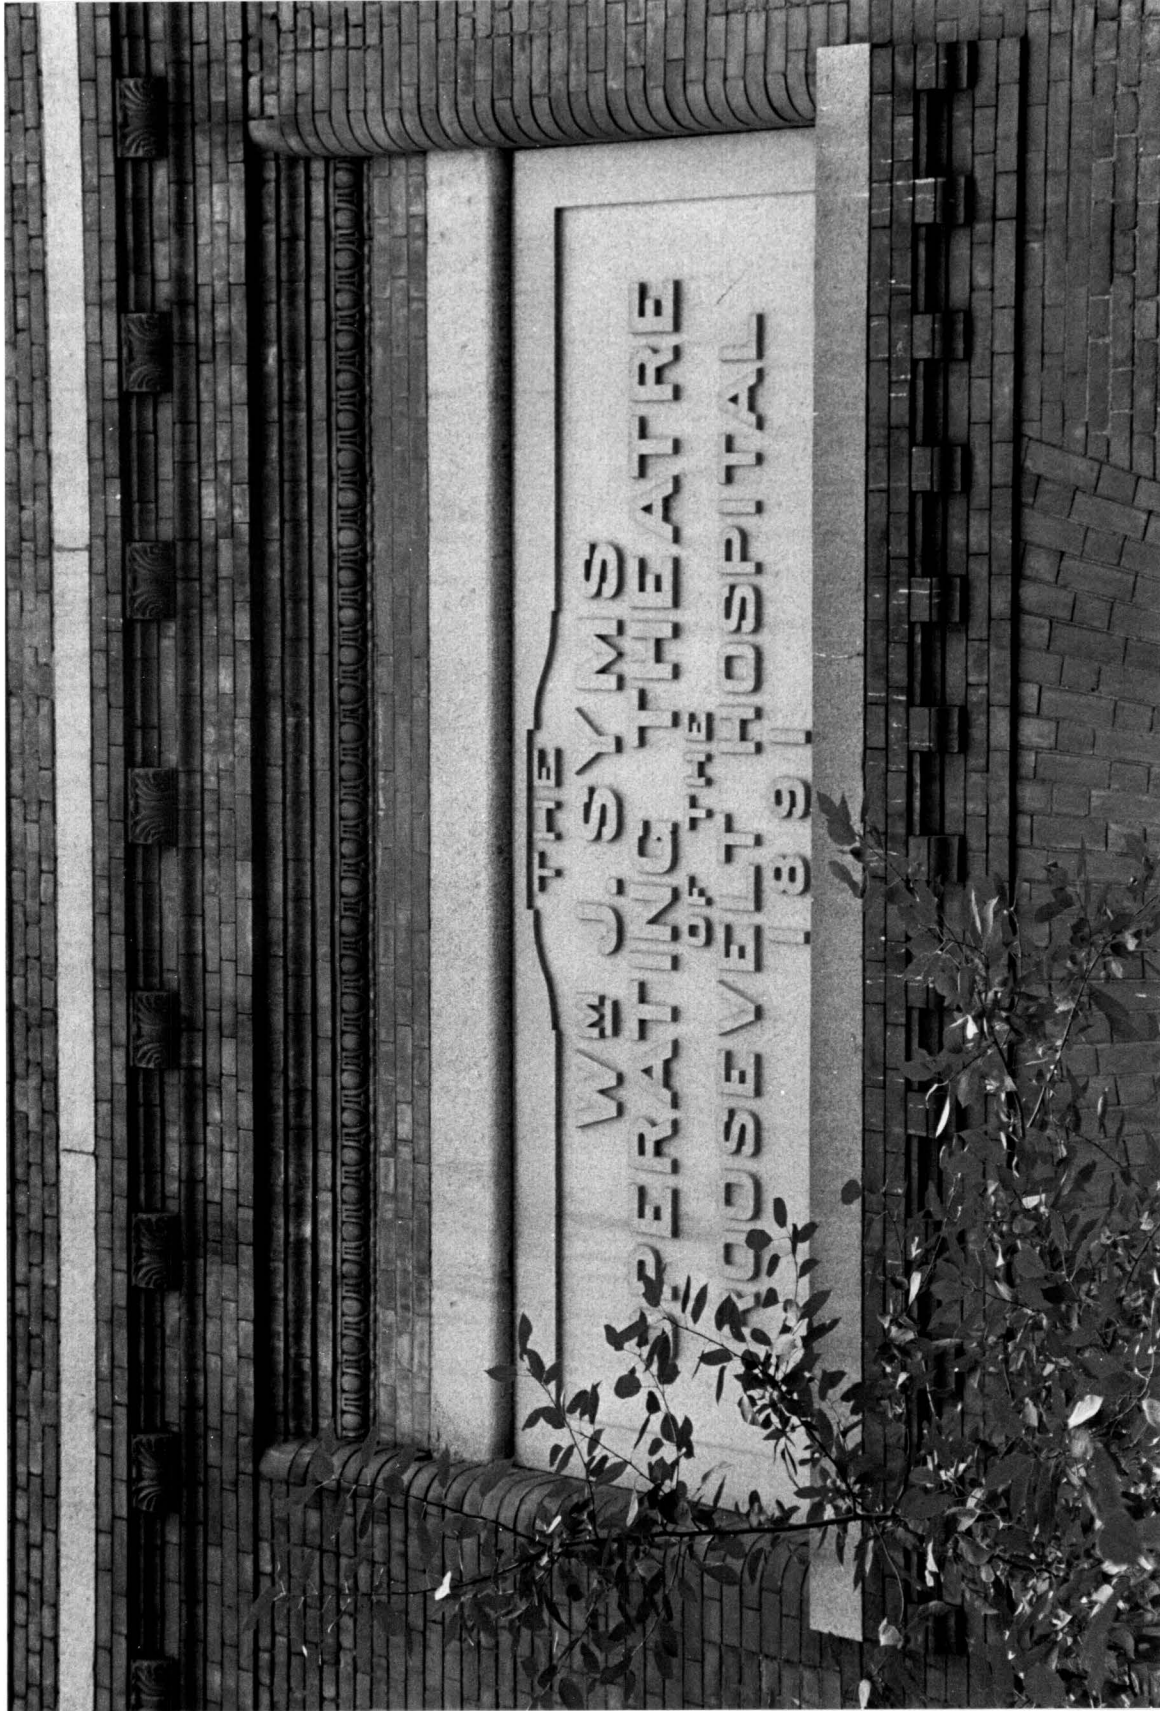 THE
WM J. SYMS
OPERATING THEATRE
OF THE
ROOSEVELT HOSPITAL
1891